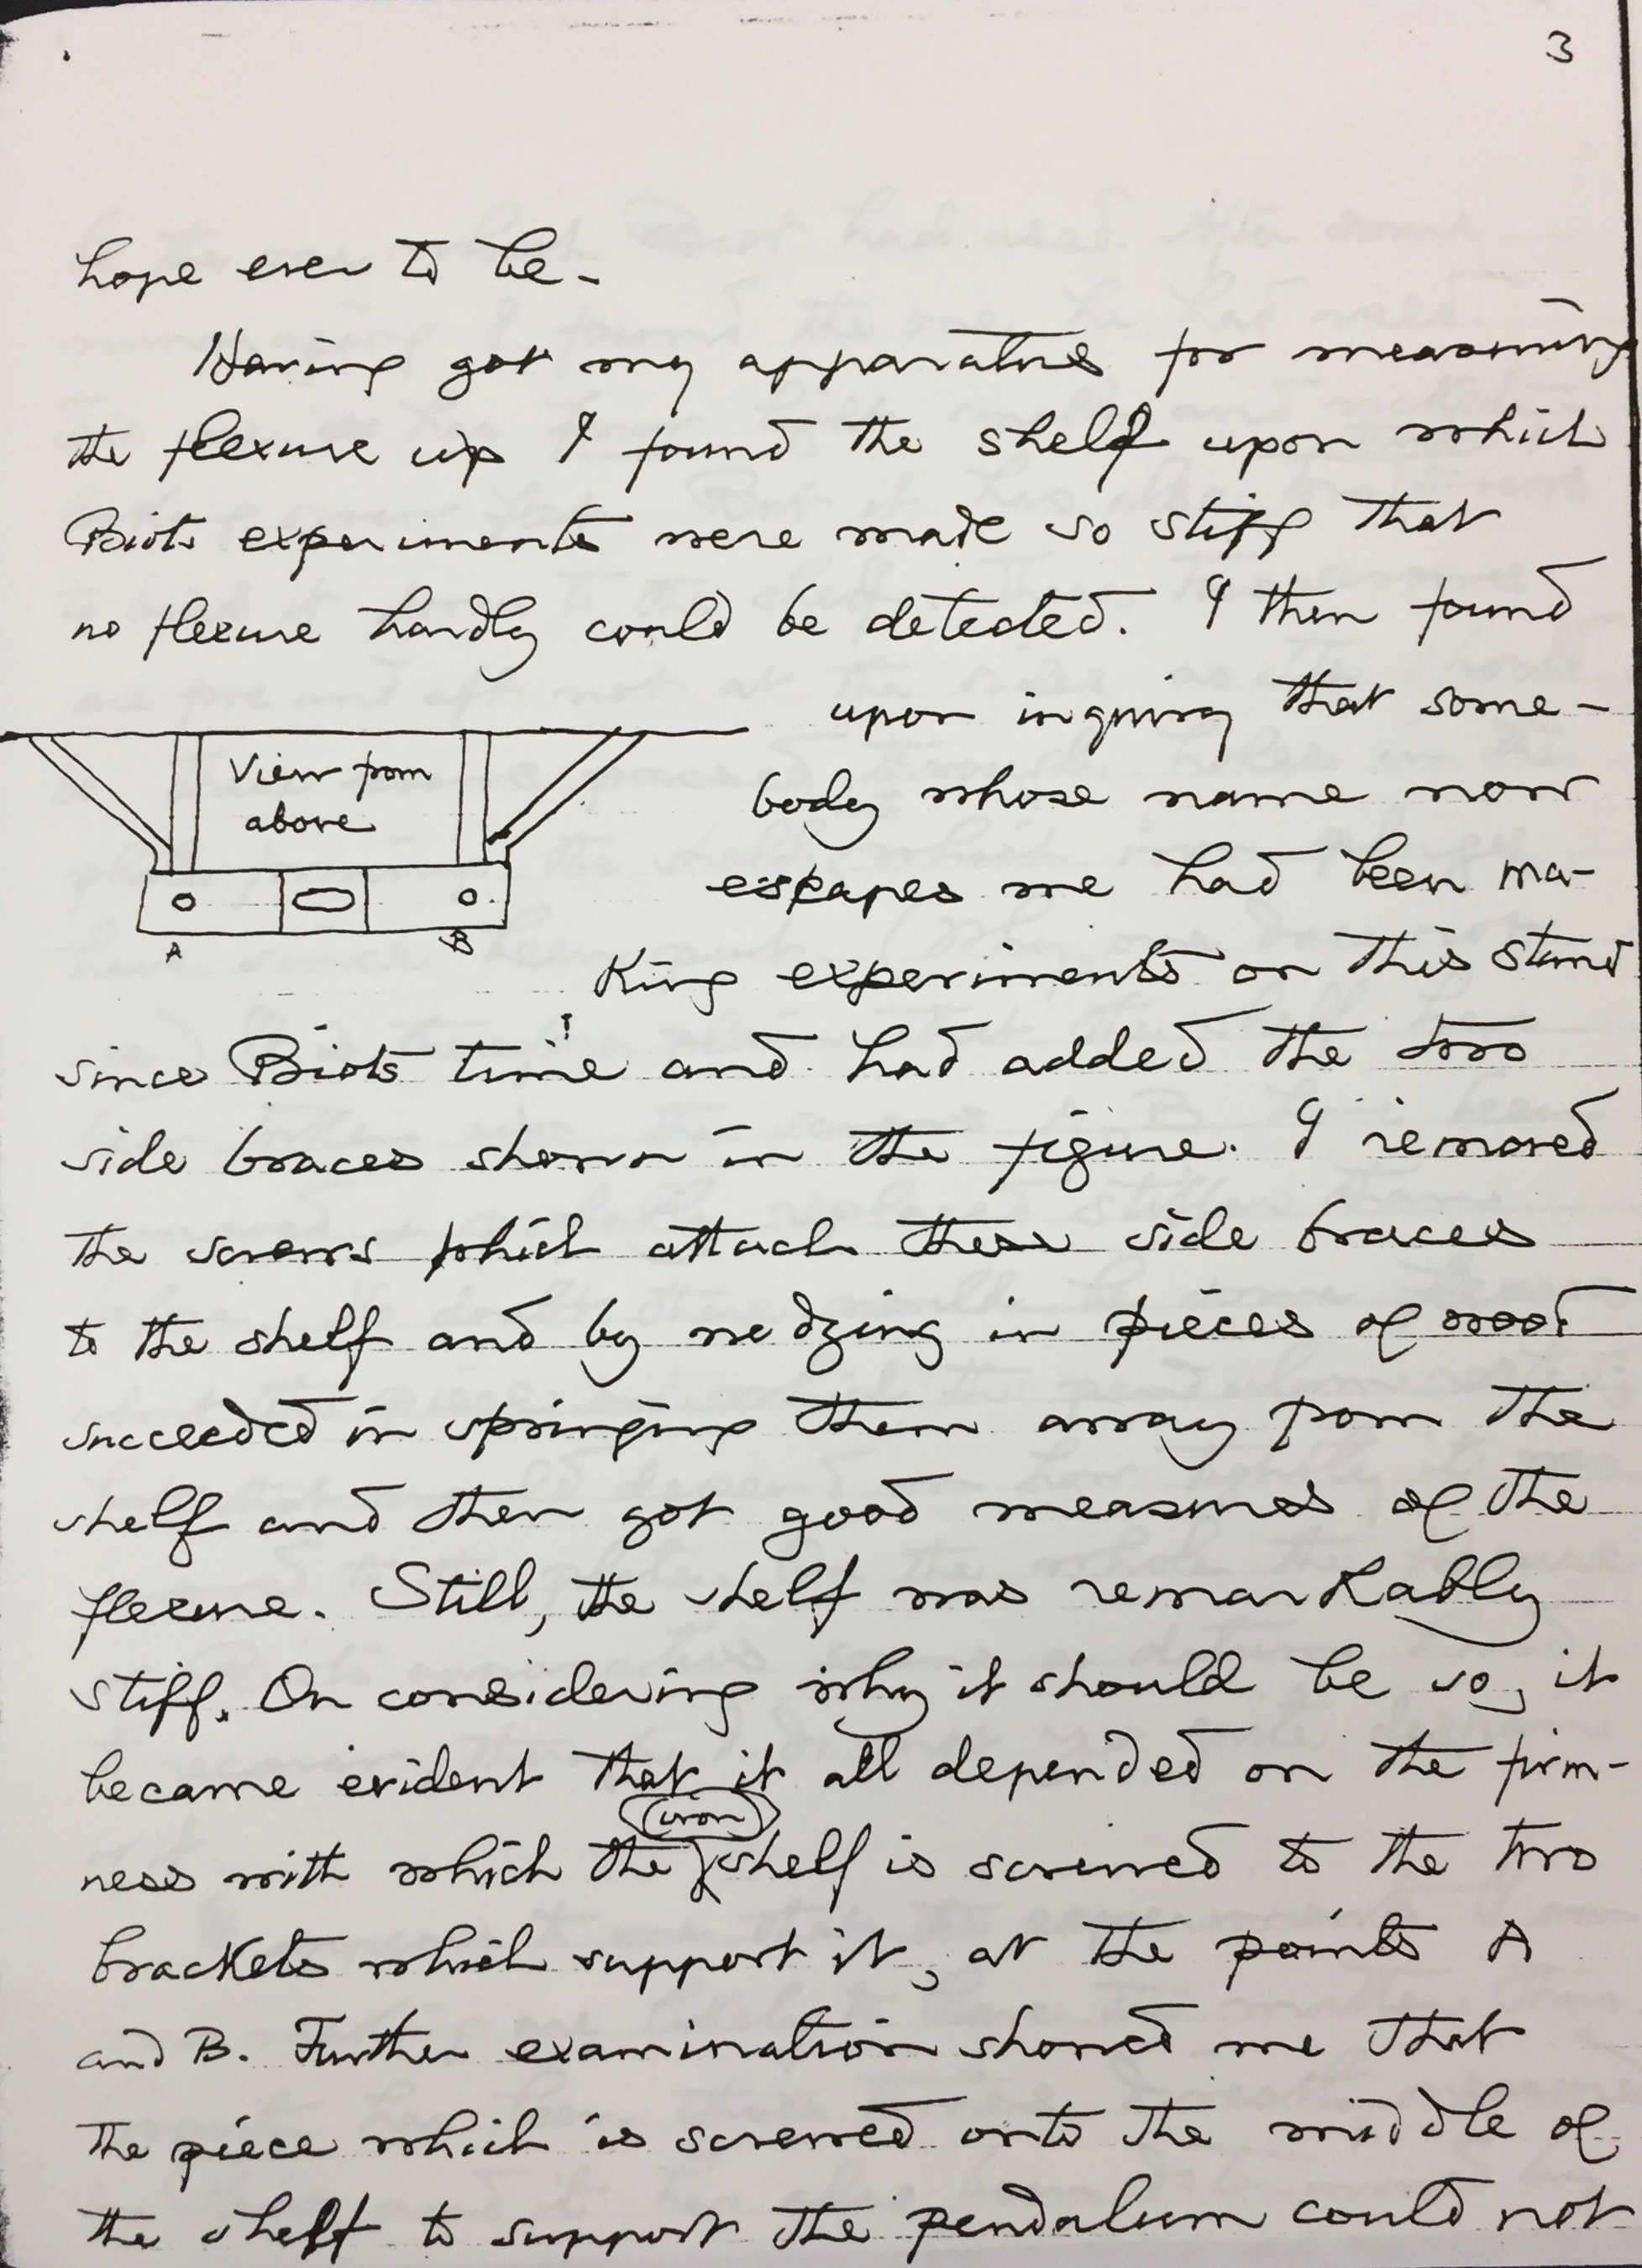 3
hope ever to be.
Having got my apparatus for measuring
the flexure up I found the shelf upon which
Biots experiments were made so stiff that
no flexure hardly could be detected. I then found
upon inquiry that some-
body whose name now
escapes me had been ma-
king experiments on this stand
View from
above
A B
since Biots time and had added the two
side braces shown in the figure. I removed
the screws which attach these side braces
to the shelf and by wedging in pieces of wood
succeeded in springing them away from the
shelf and then got good measures of the
flexure. Still, the shelf was remarkably
stiff. On considering why it should be so, it
became evident that it all depended on the firm-
iron
ness with which the shelf is screwed to the two
brackets which support it, at the points A
and B. Further examination showed me that
the piece which is screwed onto the middle of
the shelf to support the pendalum could not